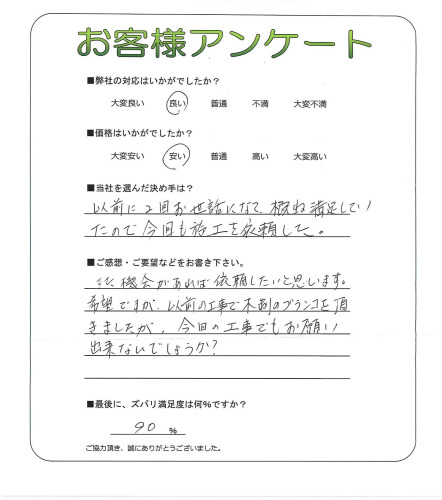 お客様アンケート
■弊社の対応はいかがでしたか？
大変良い 良い 普通 不満 大変不満
■価格はいかがでしたか？
大変安い 安い 普通 高い 大変高い
■当社を選んだ決め手は？
以前に2回お世話になって、概ね満足してい
たので今回も施工を依頼した。
■ご感想・ご要望などをお書き下さい。
また機会があれば依頼したいと思います。
希望ですが、以前の工事で木制のブランコを頂
きましたが、今回の工事でもお願い
出来ないでしょうか？
■最後に、ズバリ満足度は何％ですか？
90 ％
ご協力頂き、誠にありがとうございました。